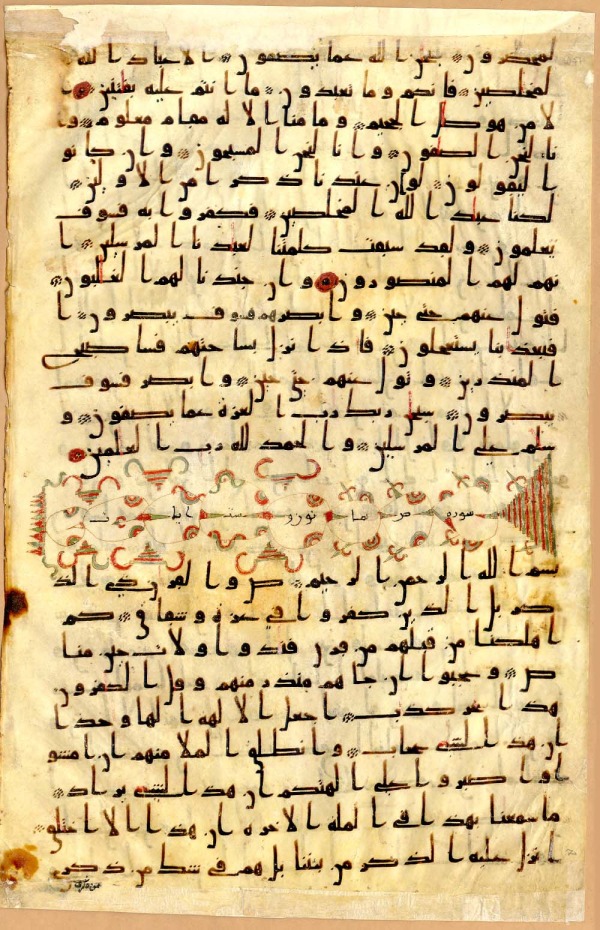 لمحضرون سبحن الله عما يصفون الا عباد الله
المخلصين فانكم وما تعبدون ما انتم عليه بفتنين ا
لا من هو صال الجحيم وما منا الا له مقام معلوم وا
نا لنحن الصفون وانا لنحن المسبحون وان كانو
ا ليقولون لو ان عندنا ذكرا من الاولين
لكنا عباد الله المخلصين فكفروا به فسوف
يعلمون ولقد سبقت كلمتنا لعبدنا المرسلين ا
نهم لهم المنصورون وان جندنا لهم الغلبون
فتول عنهم حتى حين وابصرهم فسوف يبصرون ا
فبعذبنا يستعجلون فاذا نزل بساحتهم فسا صبح
المنذرين وتول عنهم حتى حين وابصر فسوف
يبصرون سبحن ربك رب العزة عما يصفون و
سلم على المرسلين والحمد لله رب العلمين
سوره ص ثمانون و ست ايات
بسم الله الرحمن الرحيم ص والقرن ذي الذ
كر بل الذين كفروا في عزة وشقاق كم
اهلكنا من قبلهم من قرن فندوا ولات حين منا
ص وعجبوا ان جاهم منذر منهم وقال الكفرون
هذا سحر كذب اجعل الالهة الها وحدا
ان هذا لشي عجاب وانطلق الملا منهم ان امشو
ا واصبروا على الهتكم ان هذا لشي يراد
ما سمعنا بهذا في الملة الاخرة ان هذا الا اختلق
ا نزل عليه الذكر من بيننا بل هم في شك من ذكري